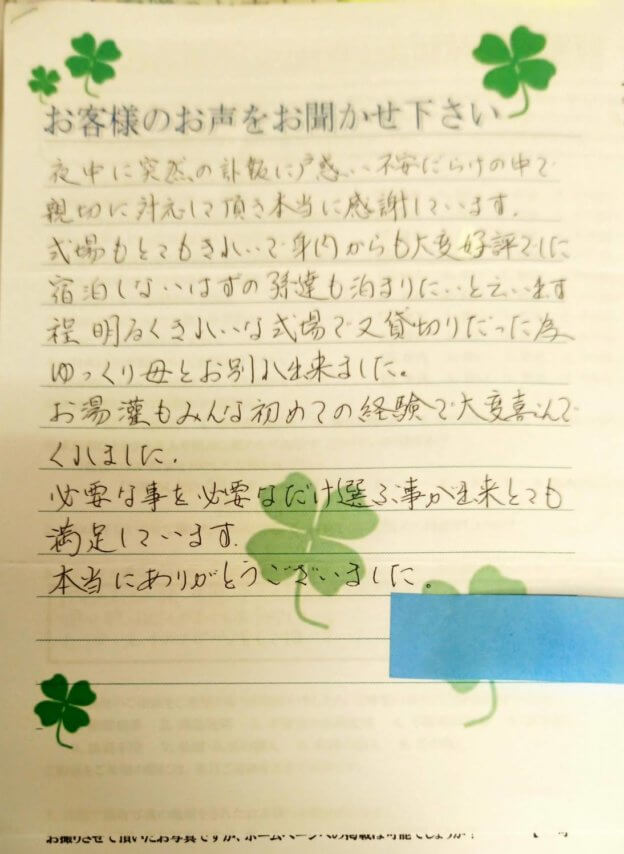 お客様のお声をお聞かせ下さい
夜中に突然の訃報に戸惑い不安だらけの中で
親切に対応して頂き本当に感謝しています.
式場もとてもきれいで身内からも大変好評でした
宿泊しないはずの孫達も泊まりたいと云います
程 明るくきれいな式場で又貸切りだった為
ゆっくり母とお別れ出来ました。
お湯灌もみんな初めての経験で大変喜んで
くれました.
必要な事を必要なだけ選ぶ事が出来とても
満足しています.
本当にありがとうございました。
お撮りさせて頂いたお写真ですが、ホームページへの掲載は可能でしょうか？